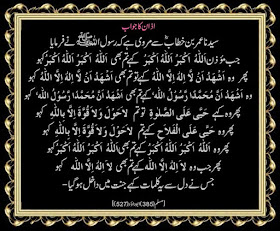 اذان کا جواب
سیدنا عمر بن خطابؓ سے مروی ہے کہ رسول اللہ ﷺ نے فرمایا
جب مؤذن اَللہُ اَکْبَرُ اَللہُ اَکْبَرُ کہے تو تم بھی اَللہُ اَکْبَرُ اَللہُ اَکْبَرُ کہو
پھر وہ اَشْھَدُ اَنْ لَّا اِلٰہَ اِلَّا اللہُ کہے تو تم بھی اَشْھَدُ اَنْ لَّا اِلٰہَ اِلَّا اللہُ کہو
پھر وہ اَشْھَدُ اَنَّ مُحَمَّدًا رَّسُوْلُ اللہِ کہے تو تم بھی اَشْھَدُ اَنَّ مُحَمَّدًا رَّسُوْلُ اللہِ کہو
پھر وہ کہے حَیَّ عَلَی الصَّلٰوۃِ تو تم لَاحَوْلَ وَلَا قُوَّۃَ اِلَّا بِاللہِ کہو
پھر وہ کہے حَیَّ عَلَی الْفَلَاحِ کہے تو تم لَاحَوْلَ وَلَا قُوَّۃَ اِلَّا بِاللہِ کہو
پھر وہ اَللہُ اَکْبَرُ اَللہُ اَکْبَرُ کہے تو تم بھی اَللہُ اَکْبَرُ اَللہُ اَکْبَرُ کہو
پھر جب وہ لَا اِلٰہَ اِلَّا اللہُ کہے تو تم بھی لَا اِلٰہَ اِلَّا اللہُ کہو
جس نے دل سے یہ کلمات کہے جنت میں داخل ہو گیا۔
(385)
(527)